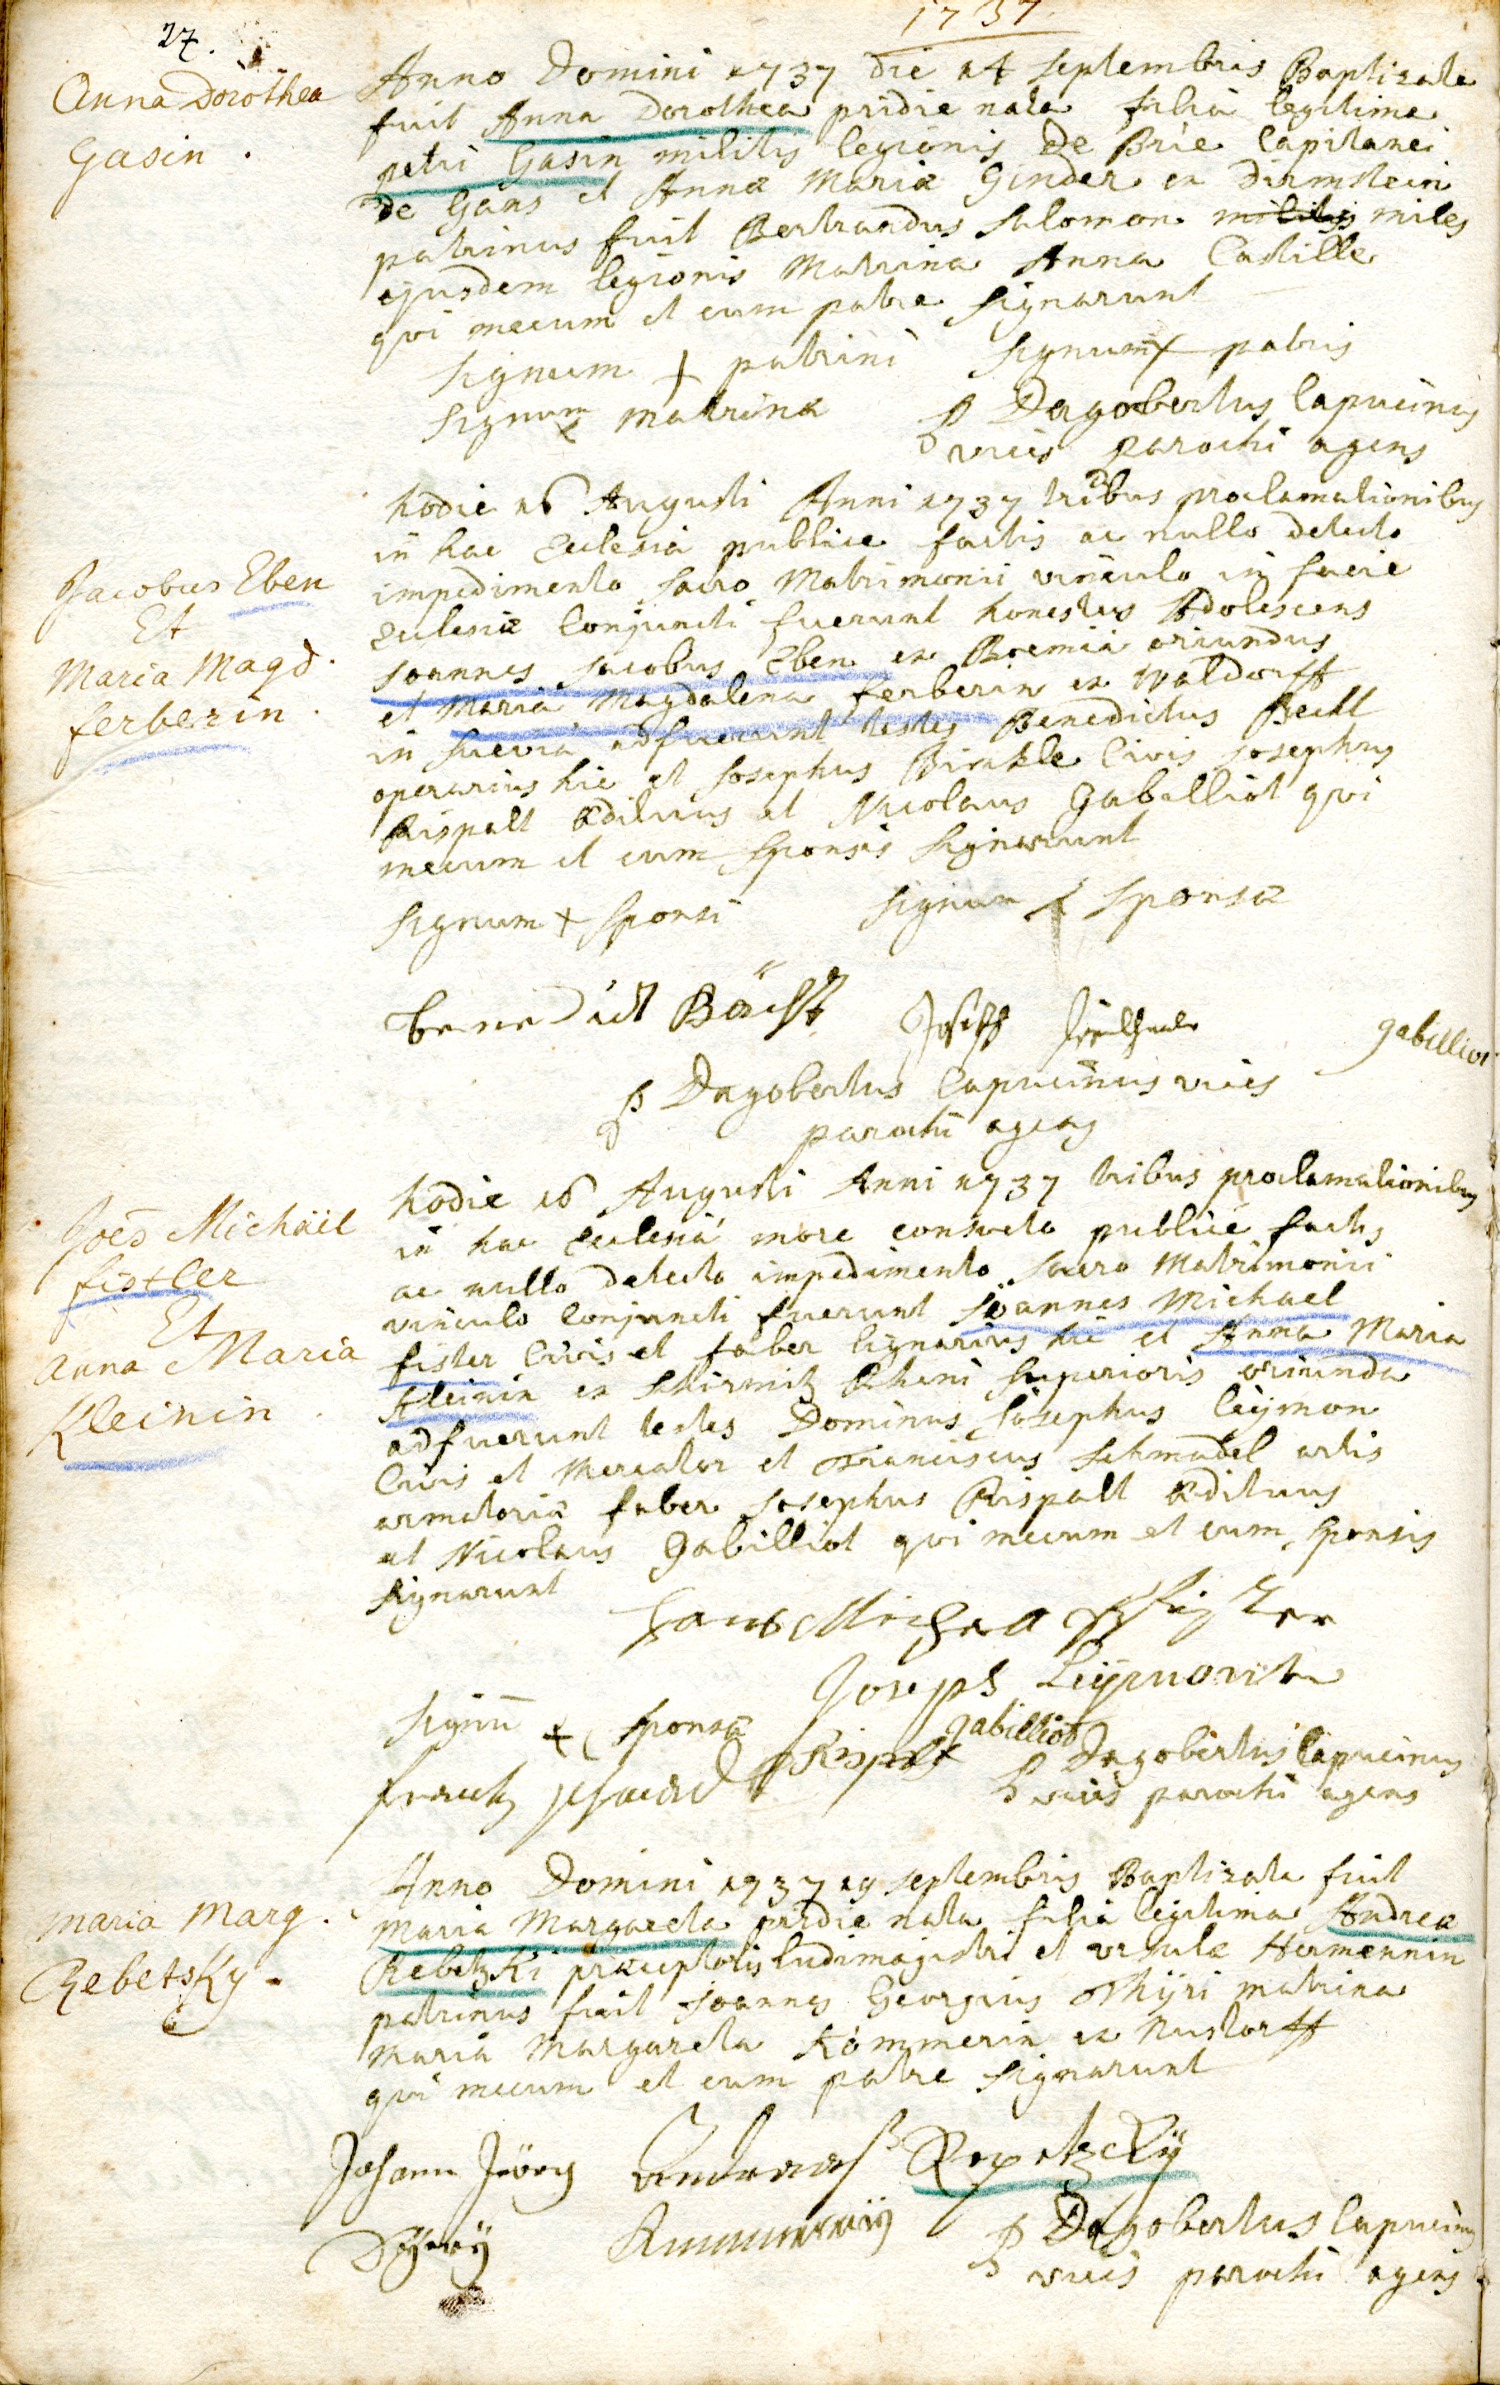 27.
1737
Anna Dorothea
Gasin.
Anno Domini 1737 die 14 septembris Baptizata
fuit Anna Dorothea pridie nata filia legitima
petri Gasin militis legionis De Brie Capitanei
de Gans et Annæ Mariæ Ginder ex Dirmstein
patrinus fuit Bertrandus Salomon militis miles
ejusdem legionis Matrina Anna Castille
qui mecum et cum patre signarunt
signum + patrini signum + patris
signum + matrinæ
P Dagobertus Capucinus
vices parochi agens
Jacobus Eben
Et
Maria Magd.
ferberin.
hodie 16 Augusti Anni 1737 tribus proclamationibus
in hac Ecclesia publice factis ac nullo detecto
impedimento sacro Matrimonii vinculo in facie
Ecclesiæ Conjuncti fuerunt honestus Adolescens
Joannes Jacobus Eben ex Boemia oriundus
et Maria Magdalena ferberin ex Waldorff
in suevia adfuerunt testes Benedictus Becht
operarius hic et Josephus Binkle Civis Josephus
Rispalt Ædituus et Nicolaus Gabilliot qui
mecum et cum sponsis signarunt
signum + sponsi signum + sponsæ
benedict Bächt Joseph
gabilliot
P Dagobertus Capucinus vices
parochi agens
Joes Michäel
fistler
Et
anna Maria
Kleinin.
hodie 16 Augusti Anni 1737 tribus proclamationibus
in hac Ecclesiâ more consueto publicè factis
ac nullo detecto impedimento sacro Matrimonii
vinculo Conjuncti fuerunt Joannes Michael
fister Civis et faber lignarius hic et Anna Maria
Kleinin ex schirmitz Rheni superioris oriunda
adfuerunt testes Dominus Josephus leymon
Civis et Mercator et Franciscus schmadel artis
armatoriæ faber Josephus Rispalt Ædituus
et Nicolaus Gabilliot qui mecum et cum sponsis
signarunt
Hans Michel
Joseph
signū + sponsæ gabilliot
frantz Rispalt P Dagobertus Capucinus
vices parochi agens
maria Marg.
Rebetsky.
Anno Domini 1737 19 septembris Baptizata fuit
Maria Margareta pridie nata filia legitima Andreæ
Rebetzki præceptoris ludimagistri et ursulæ Hermennin
patrinus fuit Joannes Georgius Thÿri matrina
Maria Margareta Kommerin ex Nustorff
qui mecum et cum patre signarunt
Johann Jörg Andreas Repetzckÿ
Dÿrÿ
P Dagobertus Capucinus
vices parochi agens